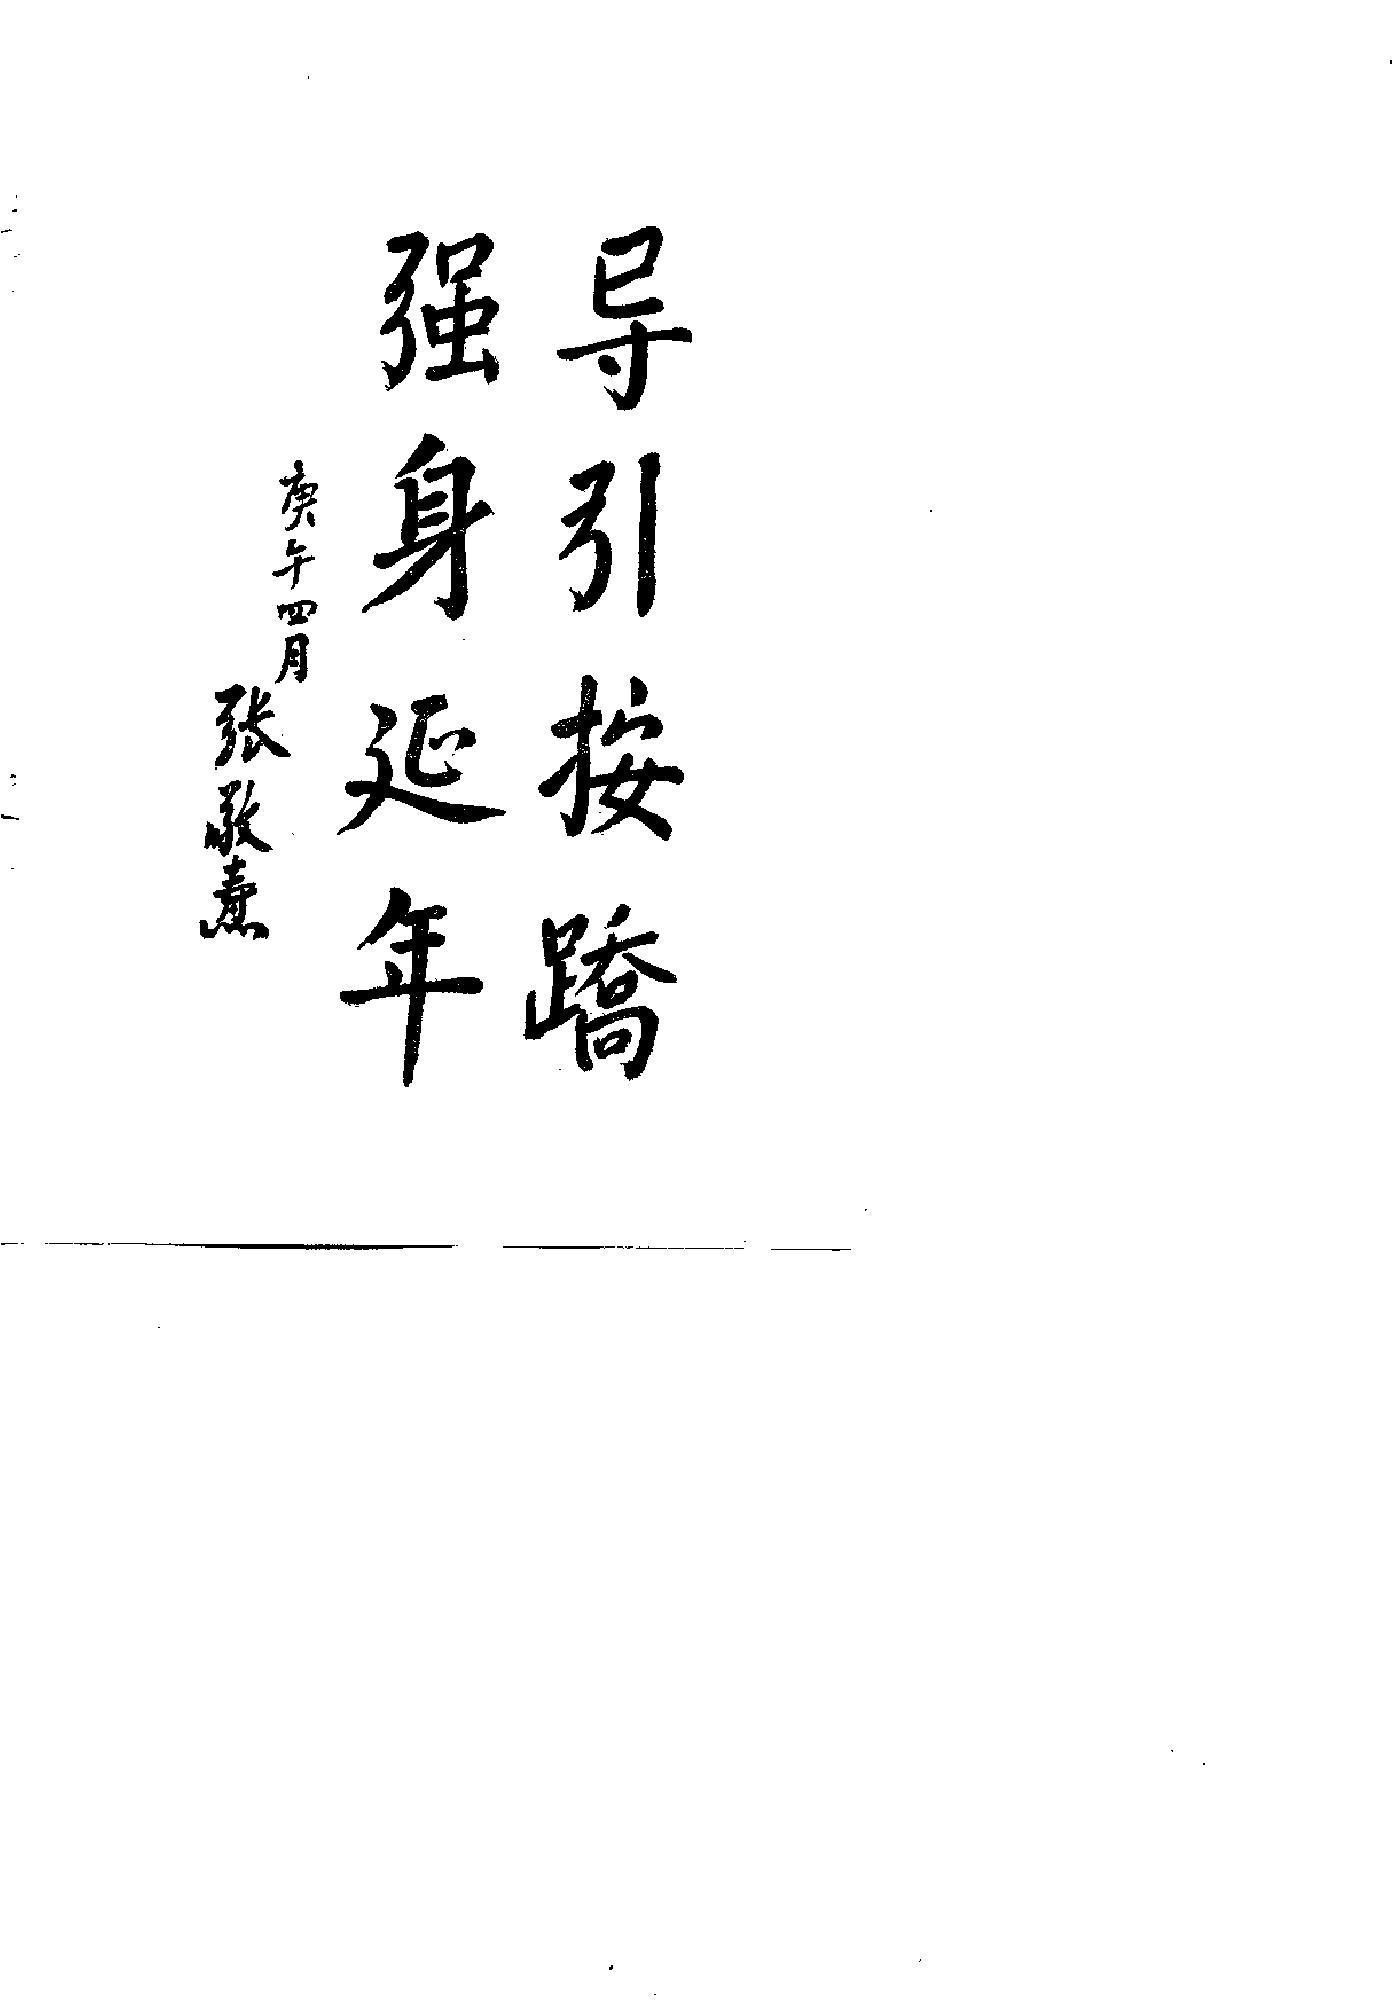 导引按蹻
强身延年
庚午四月
张敬